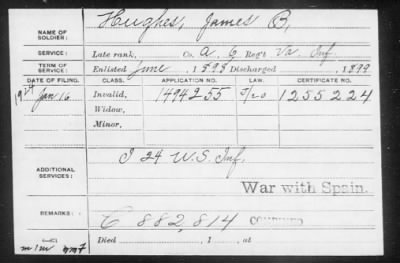 NAME OF SOLDIER: Hughes, James B.
SERVICE: Late rank, Co. A, 6 Reg't Va. Inf.
TERM OF SERVICE: Enlisted June, 1898 Discharged , 1899
DATE OF FILING. CLASS. APPLICATION NO. LAW. CERTIFICATE NO.
1924 Jan 16 Invalid, 1494255 1255224
Widow,
Minor,
ADDITIONAL SERVICES: I 24 U.S. Inf.
War with Spain.
REMARKS: C 882,814
Died , 1 , at